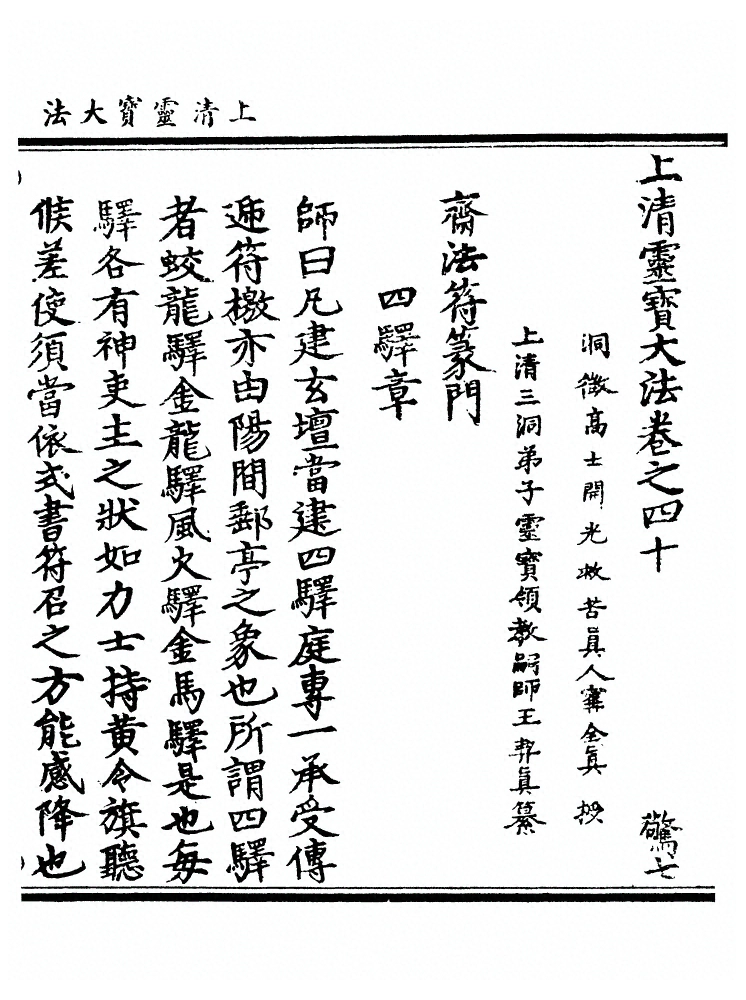 上清靈寶大法
上清靈寶大法卷之四十 驚七
洞微高士開光救苦真人寗全真授
上清三洞弟子靈寶領教嗣師王契真纂
齋法符篆門
四驛章
師曰凡建玄壇當建四驛庭專一承受傳
遞符檄亦由陽間郵亭之象也所謂四驛
者蛟龍驛金龍驛風火驛金馬驛是也每
驛各有神吏主之狀如力士持黃令旗聽
候差使須當依式書符召之方能感降也